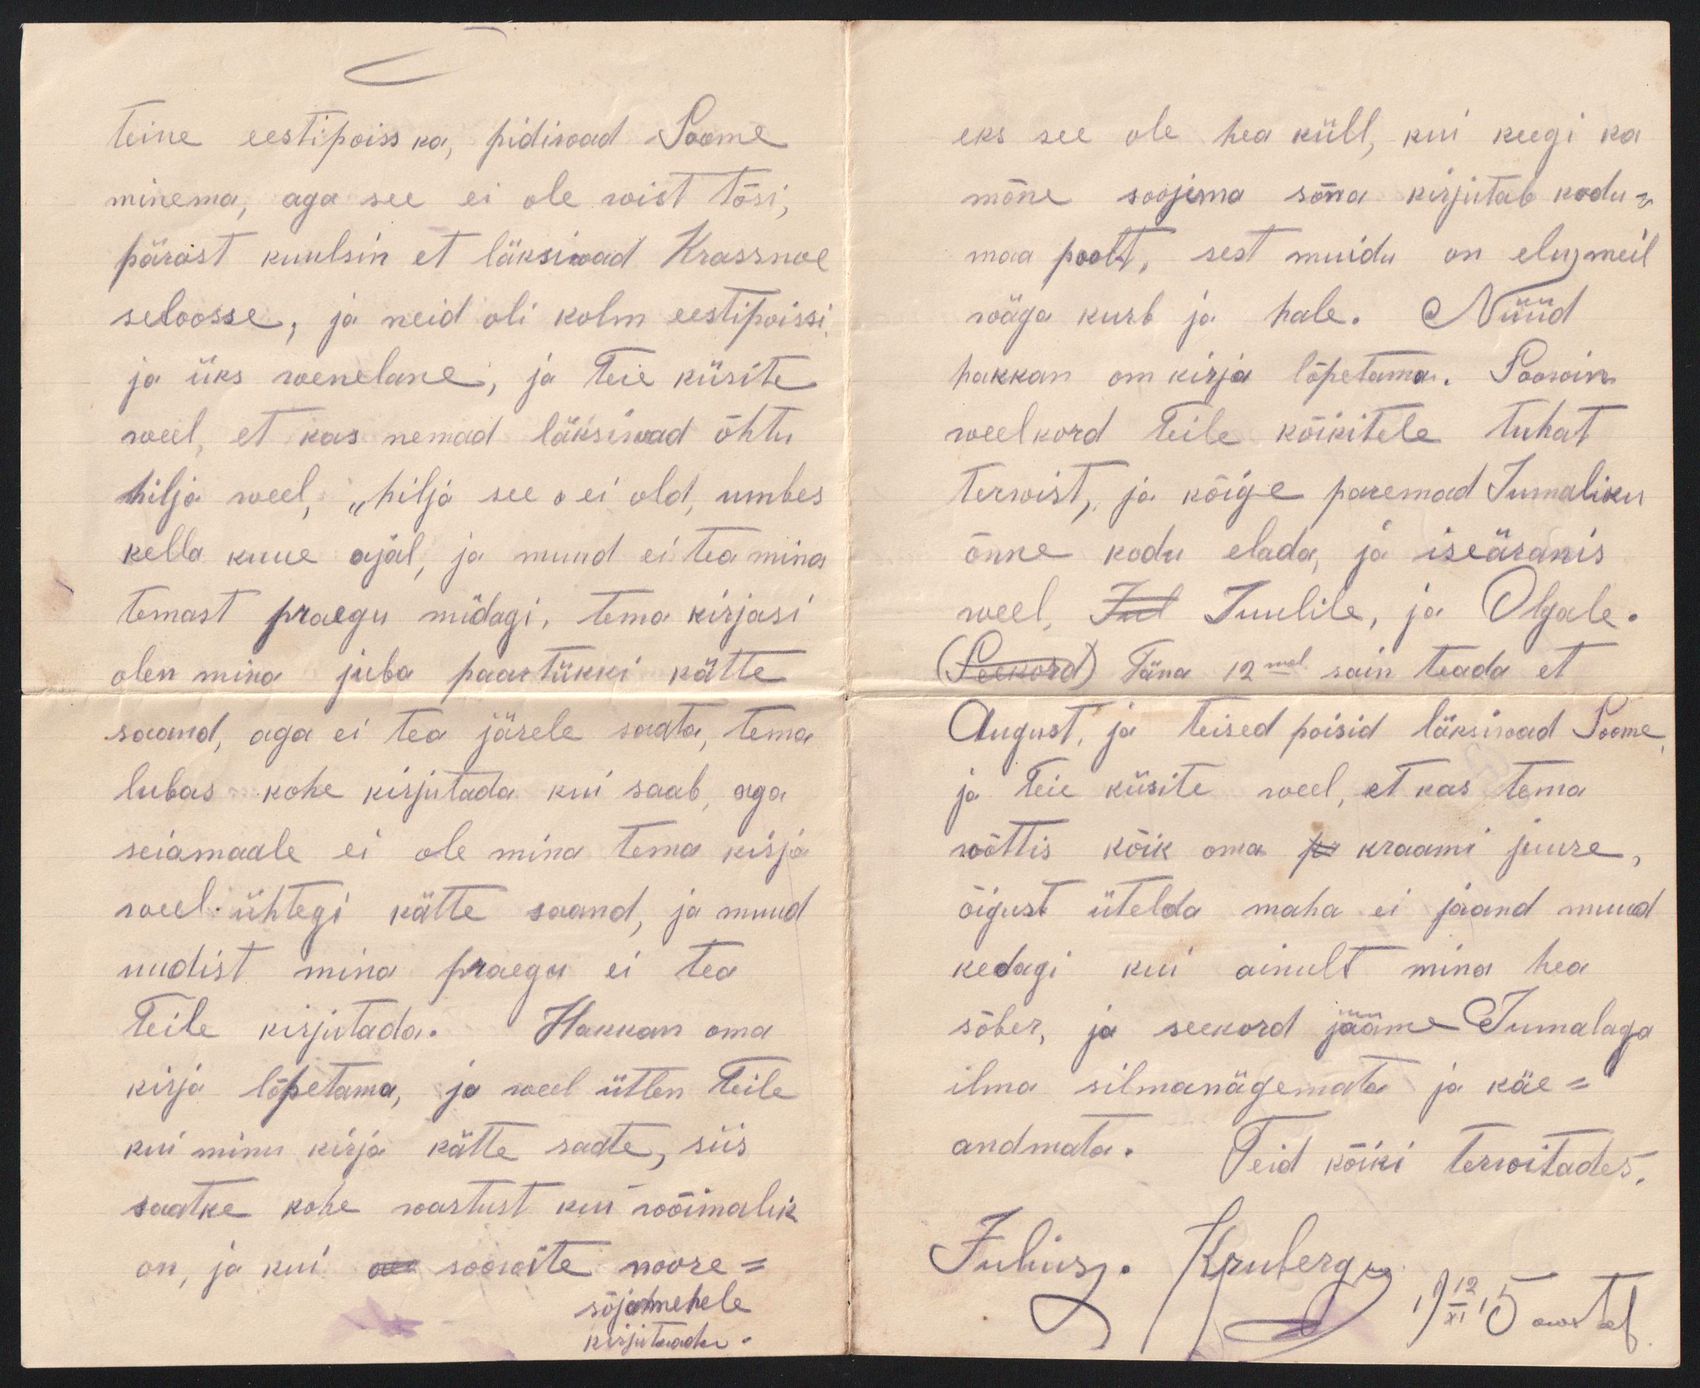 teine eestipoiss ka, pidiwad Soome
minema, aga see ei ole wist tõsi,
pärast kuulsin et läksiwad Krassnoe
seloosse, ja neid oli kolm eestipoissi
ja üks wenelane, ja Teie küsite
weel, et kas nemad läksiwad õhtu
hilja weel, „hilja see ei old, umbes
kella kuue ajal, ja muud ei tea mina
temast praegu midagi, tema kirjasi
olen mina juba paartükki kätte
saand, aga ei tea järele saata, tema
lubas kohe kirjutada kui saab, aga
seiamaale ei ole mina tema kirja
weel ühtegi kätte saand, ja muud
uudist mina praegu ei tea
Teile kirjutada. Hakkan oma
kirja lõpetama, ja weel ütlen Teile
kui minu kirja kätte saate, siis
saatke kohe wastust kui wõimalik
on, ja kui soowite noore=
sõjamehele
kirjutada.
eks see ole hea küll, kui keegi ka
mõne soojema sõna kirjutab kodu=
maa poolt, sest muidu on elu meil
wäga kurb ja hale. Nüüd
hakkan om kirja lõpetama. Soowin
weelkord Teile kõikitele tuhat
terwist, ja kõige paremad Jumaliku
õnne kodu elada, ja iseäranis
weel, Jul Juulile, ja Olgale.
(Seekord) Täna 12mel sain teada et
August, ja teised poisid läksiwad Soome,
ja Teie küsite weel, et kas tema
wõttis kõik oma kraami juure,
õigust ütelda maha ei jäand muud
kedagi kui ainult mina hea
sõber, ja seekord jääme Jumalaga
ilma silmanägemata ja käe=
andmata. Teid kõiki terwitades.
Julius. Kruberg
19 12/XI 15 aastal